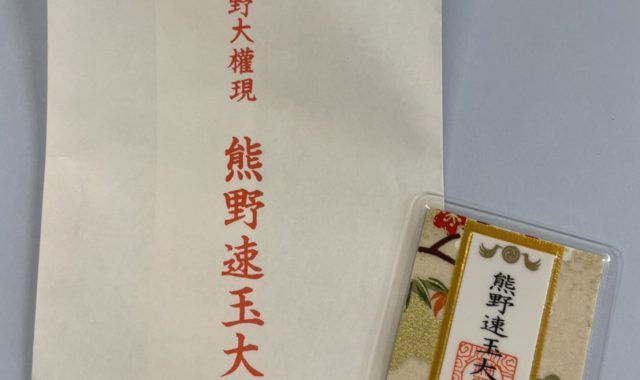 野大權現
熊野速玉大
熊野速玉大